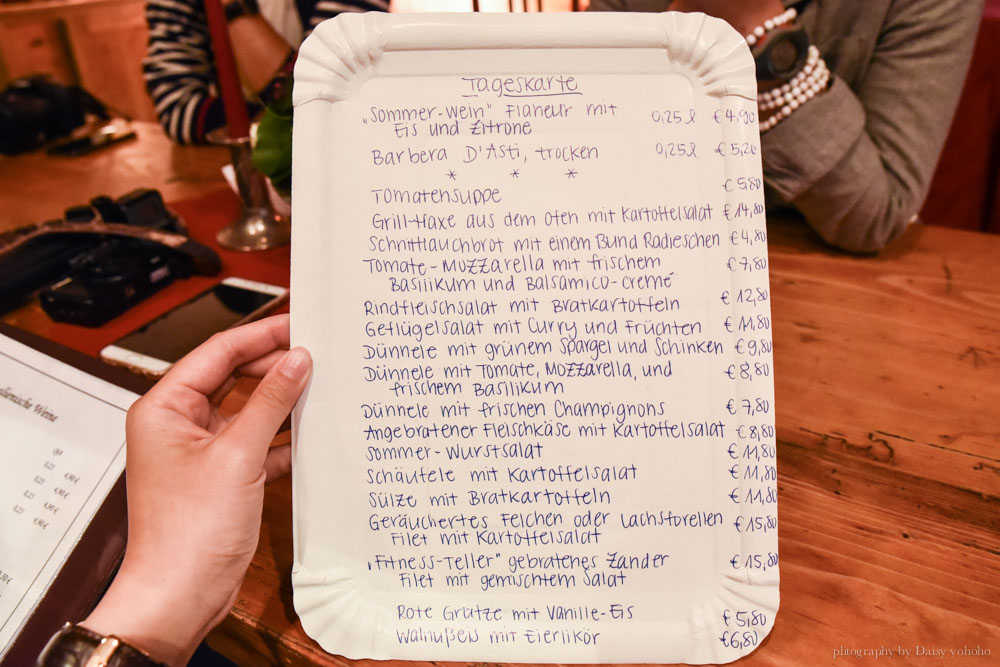 Tageskarte
„Sommer-Wein" Flaneur mit 0,25 l € 4,90
Eis und Zitrone
Barbera D'Asti, trocken 0,25 l € 5,20
* * *
Tomatensuppe € 5,80
Grill-Haxe aus dem Ofen mit Kartoffelsalat € 14,80
Schnittlauchbrot mit einem Bund Radieschen € 4,80
Tomate-Mozzarella mit frischem € 7,80
Basilikum und Balsamico-Cremé
Rindfleischsalat mit Bratkartoffeln € 12,80
Geflügelsalat mit Curry und Früchten € 11,80
Dünnele mit grünem Spargel und Schinken € 9,80
Dünnele mit Tomate, Mozzarella, und € 8,80
frischem Basilikum
Dünnele mit frischen Champignons € 7,80
Angebratener Fleischkäse mit Kartoffelsalat € 8,80
Sommer-Wurstsalat € 11,80
Schäufele mit Kartoffelsalat € 11,80
Sülze mit Bratkartoffeln € 11,80
Geräuchertes Felchen oder Lachsforellen € 15,80
Filet mit Kartoffelsalat
„Fitness-Teller" gebratenes Zander € 15,80
Filet mit gemischtem Salat
Rote Grütze mit Vanille-Eis € 5,80
Walnußeis mit Eierlikör € 6,80
alienische Weine
0,25 4,90 €
0,25 4,90 €
0,25 4,90 €
photography by Daisy yohoho